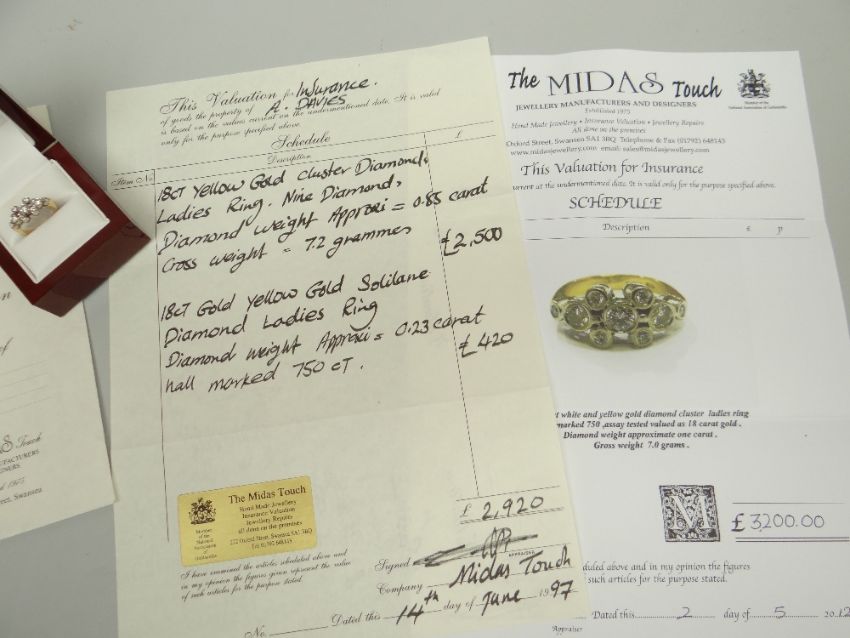 This Valuation for Insurance.
of goods the property of A. DAVIES
is based on the values current on the undermentioned date. It is valid
only for the purpose specified above.
Schedule
Item No Description £
18ct Yellow Gold Cluster Diamond,
Ladies Ring. Nine Diamond,
Diamond weight Approxi = 0.85 carat
Cross weight = 7.2 grammes £2,500
18ct Gold Yellow Gold Solilane
Diamond Ladies Ring
Diamond weight Approxi = 0.23 carat
hall marked 750 CT. £420
The Midas Touch
Hand Made Jewellery
Insurance Valuation
Jewellery Repairs
all done on the premises
Oxford Street, Swansea SA1 3BQ
Member
of the
National
Association
of
£ 2,920
I have examined the articles scheduled above and
in my opinion the figures given represent the value
of such articles for the purpose stated.
Signed
APPRAISER
Company Midas Touch
No. Dated this 14th day of June 1997
The MIDAS Touch
JEWELLERY MANUFACTURERS AND DESIGNERS
Established 1975
Hand Made Jewellery • Insurance Valuation • Jewellery Repairs
All done on the premises
Oxford Street, Swansea SA1 3BQ Telephone & Fax (01792) 648143
www.midasjewellery.com email: sales@midasjewellery.com
Member of the
National Association of Goldsmiths
This Valuation for Insurance
current at the undermentioned date. It is valid only for the purpose specified above.
SCHEDULE
Description £ p
t white and yellow gold diamond cluster ladies ring
marked 750 ,assay tested valued as 18 carat gold .
Diamond weight approximate one carat .
Gross weight 7.0 grams .
M
£ 3,200.00
duled above and in my opinion the figures
such articles for the purpose stated.
Dated this 2 day of 5 2012
Appraiser
n
of
S Touch
MANUFACTURERS
GNERS
1975
reet, Swansea